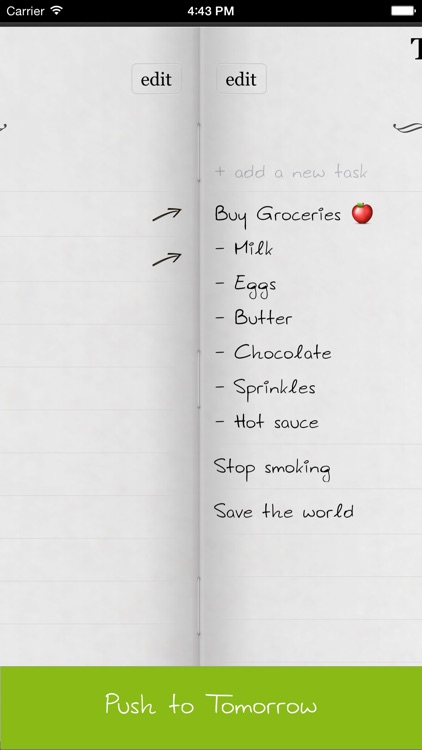 Carrier 4:43 PM
T
edit edit
+ add a new task
Buy Groceries 🍎
- Milk
- Eggs
- Butter
- Chocolate
- Sprinkles
- Hot sauce
Stop smoking
Save the world
Push to Tomorrow